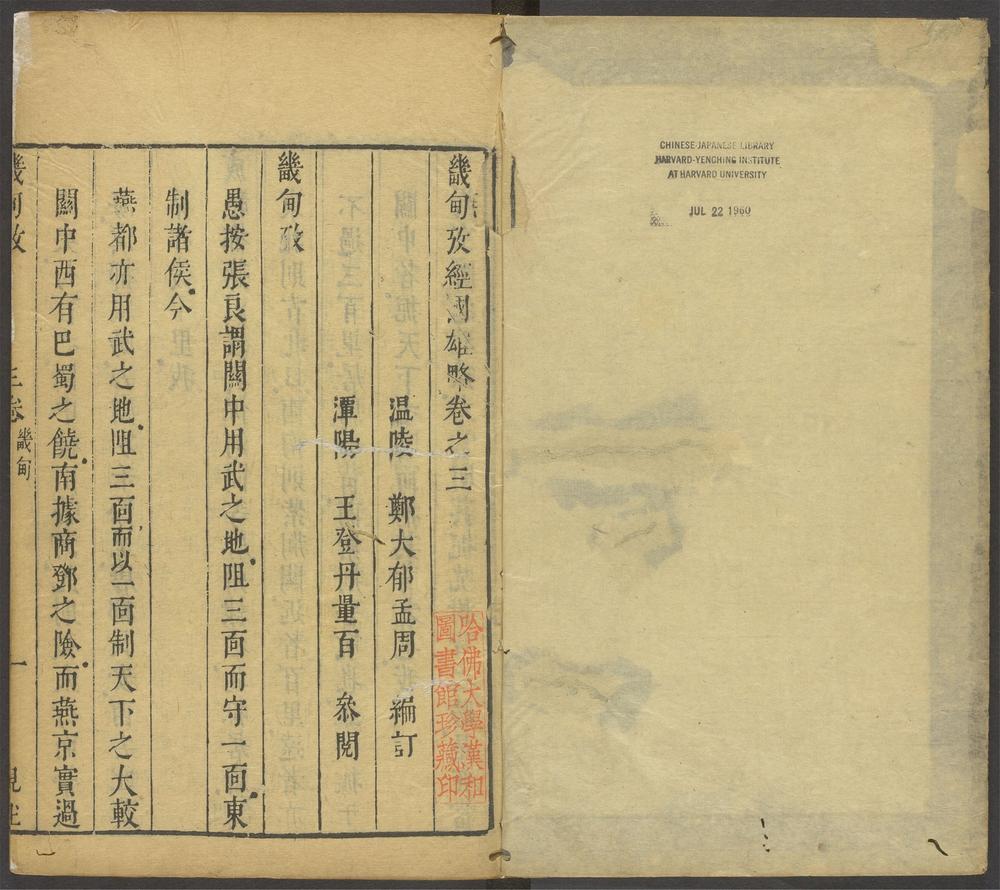 CHINESE-JAPANESE LIBRARY
HARVARD-YENCHING INSTITUTE
AT HARVARD UNIVERSITY
JUL 22 1960
畿甸攷經國雄略卷之三
溫陵 鄭大郁孟周 編訂
潭陽 王登丹量百 叅閱
哈佛大學漢和
圖書館珍藏印
畿甸攷
愚按張良謂關中用武之地阻三面而守一面東
制諸侯今
燕都亦用武之地阻三面而以一面制天下之大較
關中西有巴蜀之饒南據商鄧之險而燕京實過
畿甸攷 三卷 畿甸 一